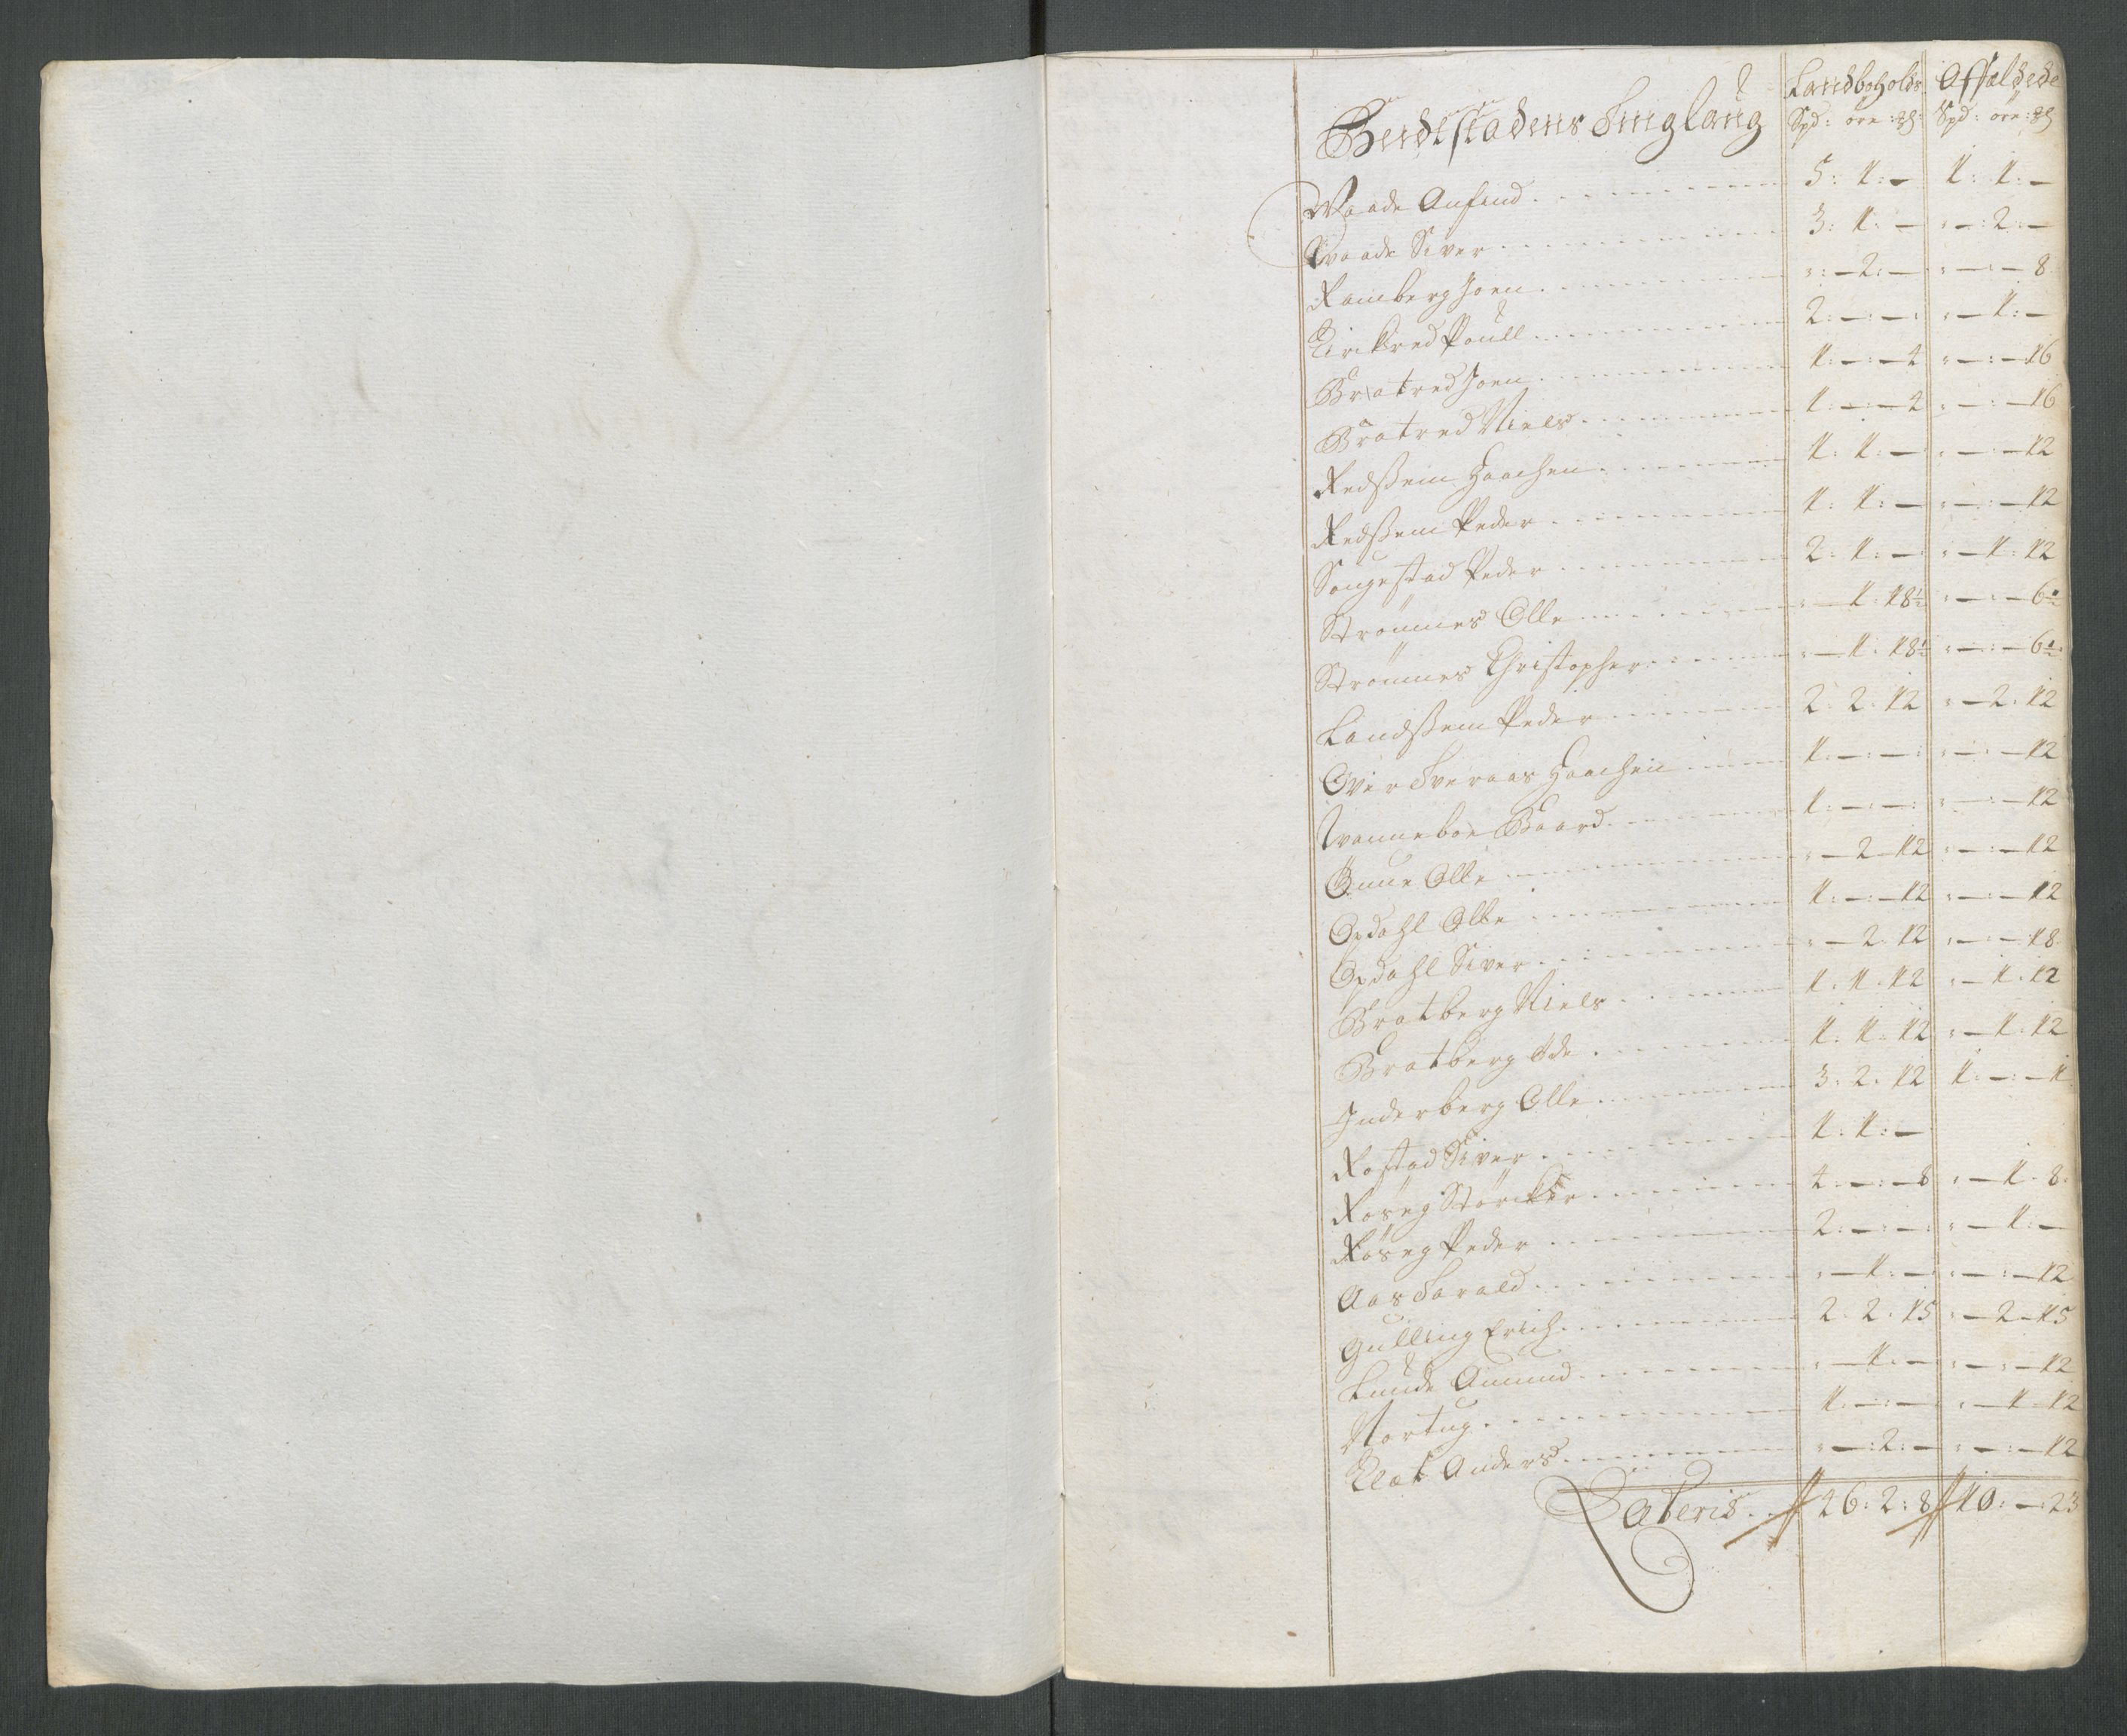 Beidtstadens Tinglaug Landboholds Affældede
Spd: öre: ₰: Spd: öre: ₰
Waade Anfind 5: 1: — 1: 1: —
Waade Siver 3: 1: — : — : 2: —
Ramberg Joen : — 2: — : — : — 8
Kirckred Poull 2: — : — : — 1: —
Bratred Joen 1: — : — 4 : — : — 16
Bratred Niels 1: — : — 4 : — : — 16
Redssem Haachen 1: 1: — : — : — 12
Redssem Peder 1: 1: — : — : — 12
Sougestad Peder 2: 1: — : — 1: 12
Strömnes Olle : — 1: 18½ : — : — 6½
Strömnes Christopher : — 1: 18½ : — : — 6½
Landssem Peder 2: 2: 12 : — 2: 12
Over Tveraas Haachen 1: — : — : — : — 12
Wanneboe Baard 1: — : — : — : — 12
Olle : — 2: 12 : — : — 12
Opdahl Olle 1: — : — 12 : — : — 12
Opdahl Siver : — 2: 12 : — : — 18
Bratberg Niels 1: 1: 12 : — 1: 12
Bratberg Ode 1: 1: 12 : — 1: 12
Inderberg Olle 3: 2: 12 1: — : — 1
Rostad Siver 1: 1: —
Röseg Störcker 4: — : — 8 : — 1: 8
Röseg Peder 2: — : — : — 1: —
Aas Tarald : — 1: — : — : — 12
Gulling Erich 2: 2: 15 : — 2: 15
Lunde Amund : — 1: — : — : — 12
Nortug 1: — : — : — 1: 12
Klæt Anders : — : 2: — : — : — 12
Lateris 46: 2: 8 10: — : 23